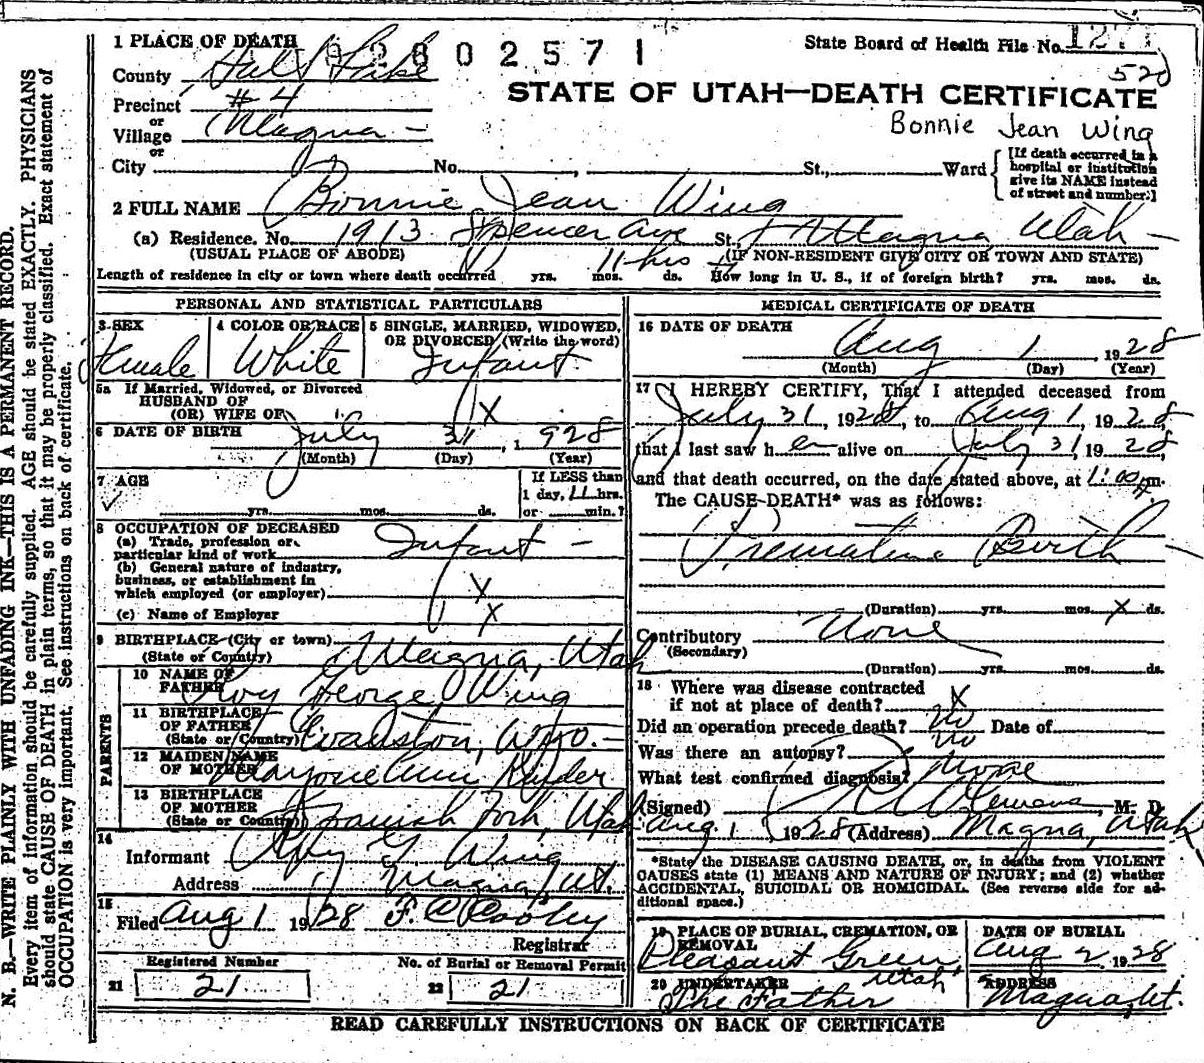 1 PLACE OF DEATH 92802571 State Board of Health File No.
County Salt Lake 520
STATE OF UTAH—DEATH CERTIFICATE
Precinct #4
or
Village Magna - Bonnie Jean Wing
or
City No. , St., Ward
[If death occurred in a hospital or institution give its NAME instead of street and number.]
2 FULL NAME Bonnie Jean Wing
(a) Residence. No. 1913 Spencer Ave St., Magna, Utah -
(USUAL PLACE OF ABODE) (IF NON-RESIDENT GIVE CITY OR TOWN AND STATE)
Length of residence in city or town where death occurred yrs. mos. 11 hrs ds. How long in U. S., if of foreign birth? yrs. mos. ds.
PERSONAL AND STATISTICAL PARTICULARS
3 SEX Female
4 COLOR OR RACE White
5 SINGLE, MARRIED, WIDOWED, OR DIVORCED (Write the word) Infant
5a If Married, Widowed, or Divorced
HUSBAND OF
(OR) WIFE OF X
6 DATE OF BIRTH July 31, 1928
(Month) (Day) (Year)
7 AGE yrs. mos. ds.
If LESS than
1 day, 11 hrs.
or min.?
8 OCCUPATION OF DECEASED
(a) Trade, profession or particular kind of work Infant -
(b) General nature of industry, business, or establishment in which employed (or employer) X
(c) Name of Employer X
9 BIRTHPLACE (City or town) Magna, Utah
(State or Country)
PARENTS
10 NAME OF FATHER Roy George Wing
11 BIRTHPLACE OF FATHER (State or Country) Evanston, Wyo. -
12 MAIDEN NAME OF MOTHER Marjorie Ann
13 BIRTHPLACE OF MOTHER (State or Country) Spanish Fork, Utah
14
Informant Roy G. Wing
Address Magna, Ut.
15
Filed Aug 1 1928
Registrar
Registered Number
21 21
No. of Burial or Removal Permit
22 21
MEDICAL CERTIFICATE OF DEATH
16 DATE OF DEATH
Aug 1, 1928
(Month) (Day) (Year)
17 I HEREBY CERTIFY, That I attended deceased from
July 31, 1928, to Aug 1, 1928,
that I last saw her alive on July 31 1928,
and that death occurred, on the date stated above, at 1:00 m.
The CAUSE DEATH* was as follows:
Premature Birth
(Duration) yrs. mos. X ds.
Contributory None
(Secondary)
(Duration) yrs. mos. ds.
18 Where was disease contracted
if not at place of death? X
Did an operation precede death? no Date of
Was there an autopsy? no
What test confirmed diagnosis? None
(Signed) M. D.
Aug. 1 1928 (Address) Magna, Utah
*State the DISEASE CAUSING DEATH, or, in deaths from VIOLENT
CAUSES state (1) MEANS AND NATURE OF INJURY; and (2) whether
ACCIDENTAL, SUICIDAL OR HOMICIDAL. (See reverse side for ad-
ditional space.)
19 PLACE OF BURIAL, CREMATION, OR REMOVAL
Pleasant Green, Utah
DATE OF BURIAL
Aug 2, 1928
20 UNDERTAKER
The Father
ADDRESS
Magna, Ut.
READ CAREFULLY INSTRUCTIONS ON BACK OF CERTIFICATE
N. B.—WRITE PLAINLY WITH UNFADING INK—THIS IS A PERMANENT RECORD.
Every item of information should be carefully supplied. AGE should be stated EXACTLY. PHYSICIANS
should state CAUSE OF DEATH in plain terms, so that it may be properly classified. Exact statement of
OCCUPATION is very important. See instructions on back of certificate.